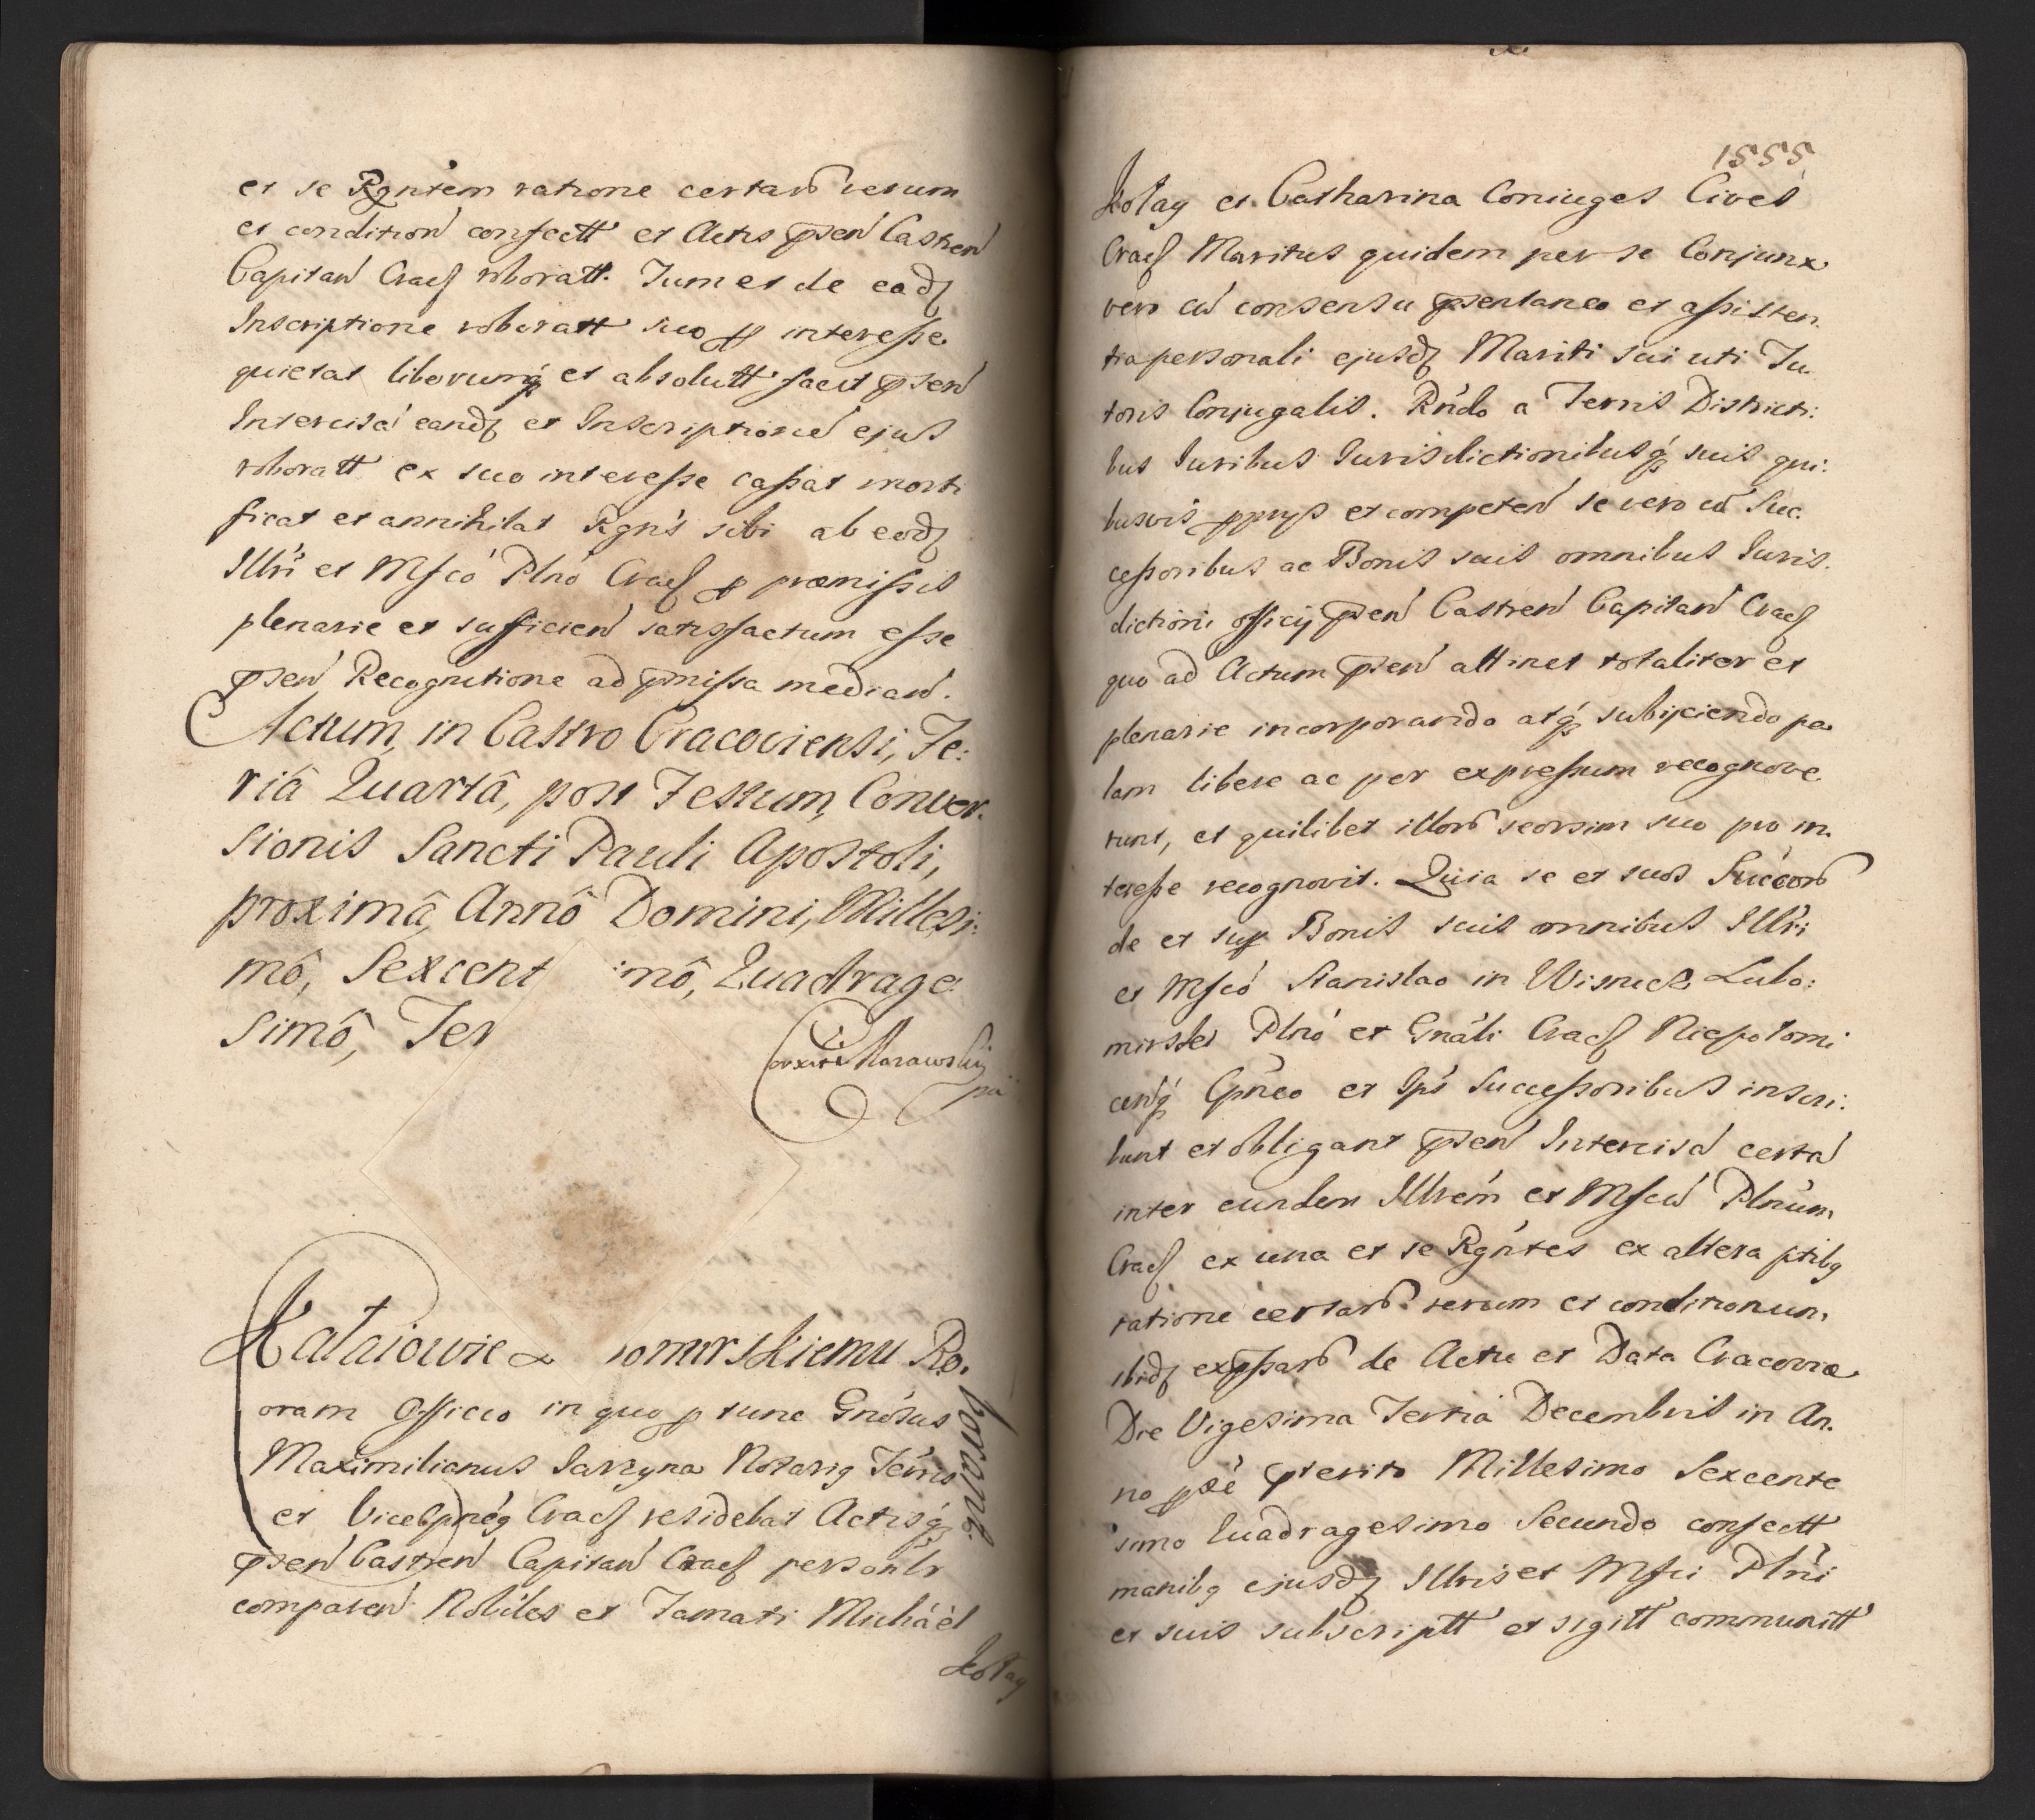 et se Rgntem ratione certarũ rerum
et condition confectt et Actis psen Castren
Capitan Cracẞ roboratt. Tum et de eadz
Inscriptione roboratt suo p interesse
quietat liberumq et absolutt facit psen
Intercisa eandz et Inscriptione ejus
roboratt ex suo interesse cassat morti
ficat et annihilat Rgns sibi ab eodz
Illri et Mfco Plno Cracẞ p præmissis
plenarie et sufficien satisfactum esse
psen Recognitione ad pmissa median.
Actum, in Castro Cracoviensi, Fe:
riâ Quartâ, post Festum, Conver-
sionis Sancti Pauli Apostoli,
proximâ, Annô Domini, Millesi:
mô, Sexcent :mô, Quadrage
simô, Ter
Morawskij
Kataiowie omirskiemu Ro.
borant
oram Officio in quo p tunc Gnosus
Maximilianus Jarzyna Notariq Terris
et Vicecpneq Cracẞ residebat Actisq
psen Castren Capitan Cracẞ personlr
comparen Nobiles et Famati Michaël
Kotay
1555
Kotay et Catharina Coniuges Cives
Cracẞ Maritus quidem per se Conjunx
vero cũ consensu psentaneo et assisten
tia personali ejusdz Mariti sui uti Tu
toris Conjugalis. Rndo a Terris Districti:
bus Iuribus Iurisdictionibusq suis qui:
busvis pprijs et competen se vero cũ Suc
cessoribus ac Bonis suis omnibus Iuris.
dictioni officij psen Castren Capitan Cracẞ
quo ad Actum psen attinet totaliter et
plenarie incorporando atq subijciendo pa
lam libere ac per expressum recognove
runt, et quilibet illorũ seorsim suo pro in
teresse recognovit. Quia se et suos Succorũ
de et sup Bonis suis omnibus Illri
et Mfco Stanislao in Wisnicz Lubo:
mirski Plno et Gnali Cracẞ Niepolomi
cenq Cpneo et Ips Successoribus inscri:
bunt et obligant psen Intercisa certa
inter eundem Illrem et Mfcũ Plnum
Cracẞ ex una et se Rgntes ex altera ptibq
ratione certarũ rerum et conditionum,
ibidz expssarũ de Actu et Data Cracoviæ
Die Vigesima Tertia Decembris in An.
no pxe pterito Millesimo Sexcente
simo Quadragesimo Secundo confectt
manibq ejusdz Illris et Mfci Plni
et suis subscriptt et sigitt communitt